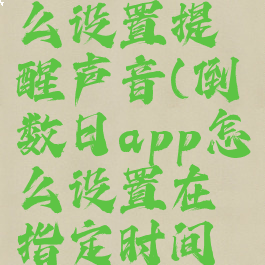 么设置提
醒声音(倒
数日app怎
么设置在
指定时间